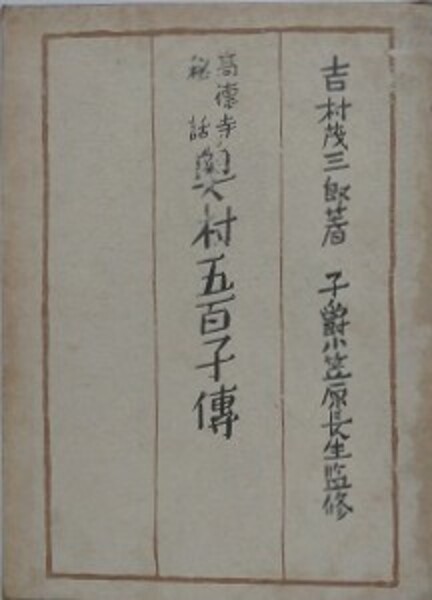 吉村茂三郎著 子爵小笠原長生監修
高德寺
秘話
奧村五百子傳